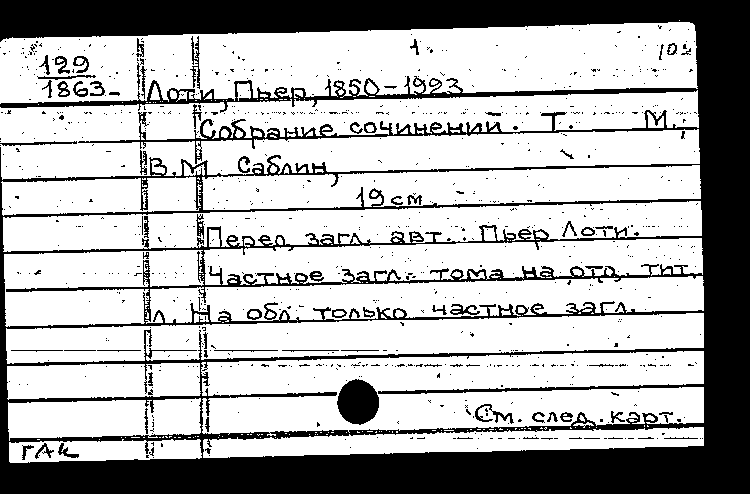 1.
129
1863-
Лоти, Пьер, 1850-1923
Собрание сочинений. Т. М.;
В.М. Саблин,
19 см.
Перед загл. авт.: Пьер Лоти.
Частное загл. тома на отд. тит.
л. На обл. только частное загл.
См. след. карт.
ГАК